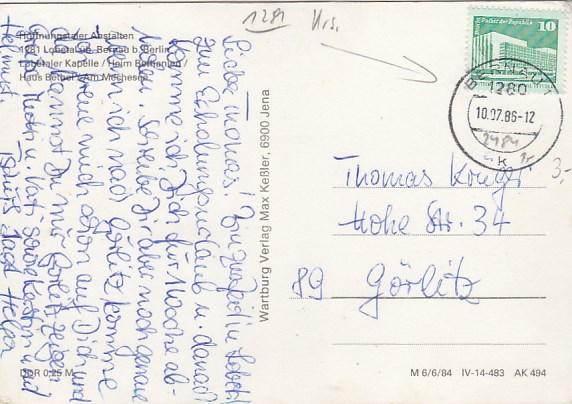 1281 Krs.
Hoffnungstaler Anstalten
1281 Lobetal üb. Bernau b. Berlin
Lobetaler Kapelle / Heim Bethanien /
Haus Bethel / Am Mechesee
DDR 0,25 M
Wartburg Verlag Max Keßler, 6900 Jena
M 6/6/84 IV-14-483 AK 494
Palast der Republik
10
BERNAU 1
1280
10.07.86-12
k
3,-
Thomas
Hohe Str. 34
89 Görlitz
Lieber Thomas! Bin grad in Lobetal
zum Erholungsurlaub u. danach
komme ich, Dich für 1 Woche ab-
holen. Schreibe Dir aber noch genau
wenn ich nach Görlitz komme
freue mich schon auf Dich und
kannst Du mir Görlitz zeigen
Mutti u. Vati sowie Kerstin und
Helmut. Tschüß sagt